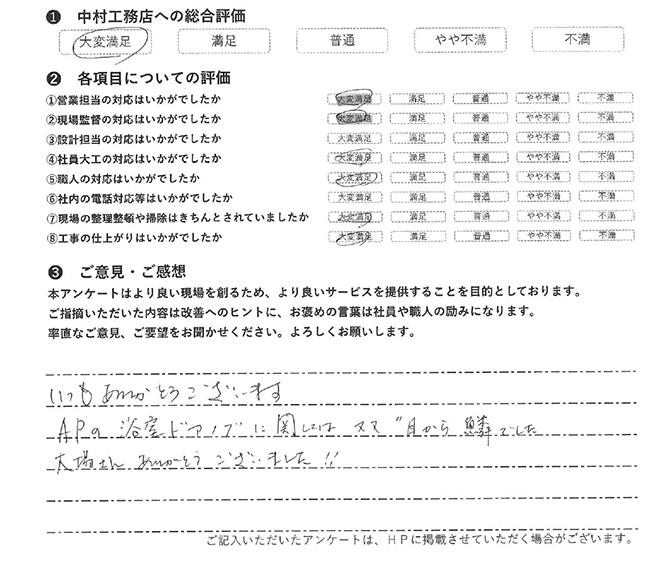 ❶ 中村工務店への総合評価
大変満足 満足 普通 やや不満 不満
❷ 各項目についての評価
①営業担当の対応はいかがでしたか 大変満足 満足 普通 やや不満 不満
②現場監督の対応はいかがでしたか 大変満足 満足 普通 やや不満 不満
③設計担当の対応はいかがでしたか 大変満足 満足 普通 やや不満 不満
④社員大工の対応はいかがでしたか 大変満足 満足 普通 やや不満 不満
⑤職人の対応はいかがでしたか 大変満足 満足 普通 やや不満 不満
⑥社内の電話対応等はいかがでしたか 大変満足 満足 普通 やや不満 不満
⑦現場の整理整頓や掃除はきちんとされていましたか 大変満足 満足 普通 やや不満 不満
⑧工事の仕上がりはいかがでしたか 大変満足 満足 普通 やや不満 不満
❸ ご意見・ご感想
本アンケートはより良い現場を創るため、より良いサービスを提供することを目的としております。
ご指摘いただいた内容は改善へのヒントに、お褒めの言葉は社員や職人の励みになります。
率直なご意見、ご要望をお聞かせください。よろしくお願いします。
いつもありがとうございます
APの浴室ドアノブに関しては 目から鱗でした
大場さんありがとうございました!!
ご記入いただいたアンケートは、HPに掲載させていただく場合がございます。